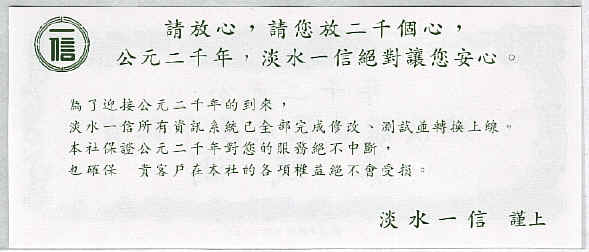 一信
請放心，請您放二千個心，
公元二千年，淡水一信絕對讓您安心。
為了迎接公元二千年的到來，
淡水一信所有資訊系統已全部完成修改、測試並轉換上線。
本社保證公元二千年對您的服務絕不中斷，
也確保　貴客戶在本社的各項權益絕不會受損。
淡水一信　謹上